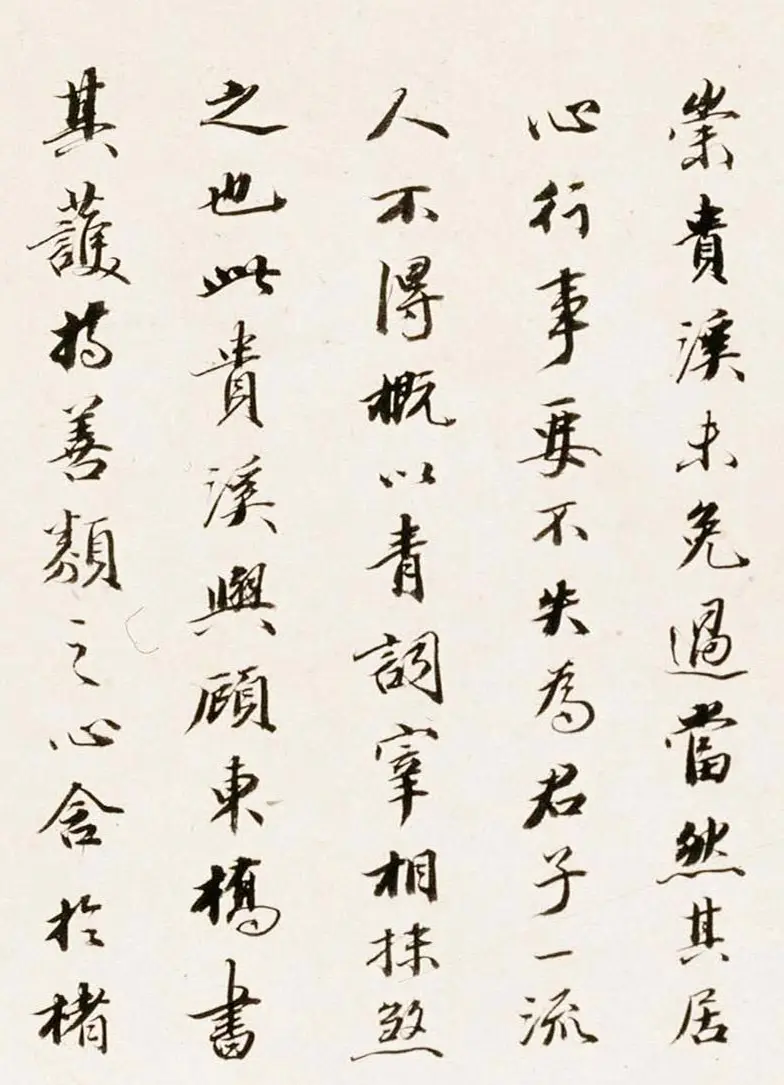 崇貴溪未免過當然其居
心行事要不失為君子一流
人不得概以青詞宰相抹煞
之也此貴溪與顧東橋書
其護持善類之心含於楮